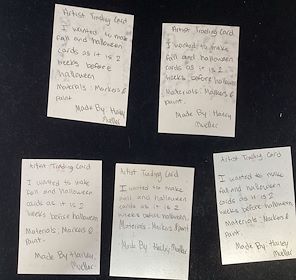 Artist Trading Card
I wanted to make
fall and halloween
cards as it is 2
weeks before
halloween
Materials: Markers &
Paint
Made By: Hailey
Mueller
Artist Trading Card
I wanted to make
fall and halloween
cards as it is 2
weeks before halloween
Materials: Markers &
Paint.
Made By: Hailey
Mueller
Artist Trading Card
I wanted to make
fall and halloween
cards as it is 2
weeks before halloween
Materials: Markers &
Paint.
Made By: Hailey
Mueller
Artist Trading Card
I wanted to make
fall and halloween
cards as it is 2
weeks before halloween
Materials: Markers & Paint
Made By: Hailey Mueller
Artist Trading Card
I wanted to make
fall and halloween
cards as it is 2
weeks before halloween
Materials: Markers &
Paint.
Made By: Hailey
Mueller